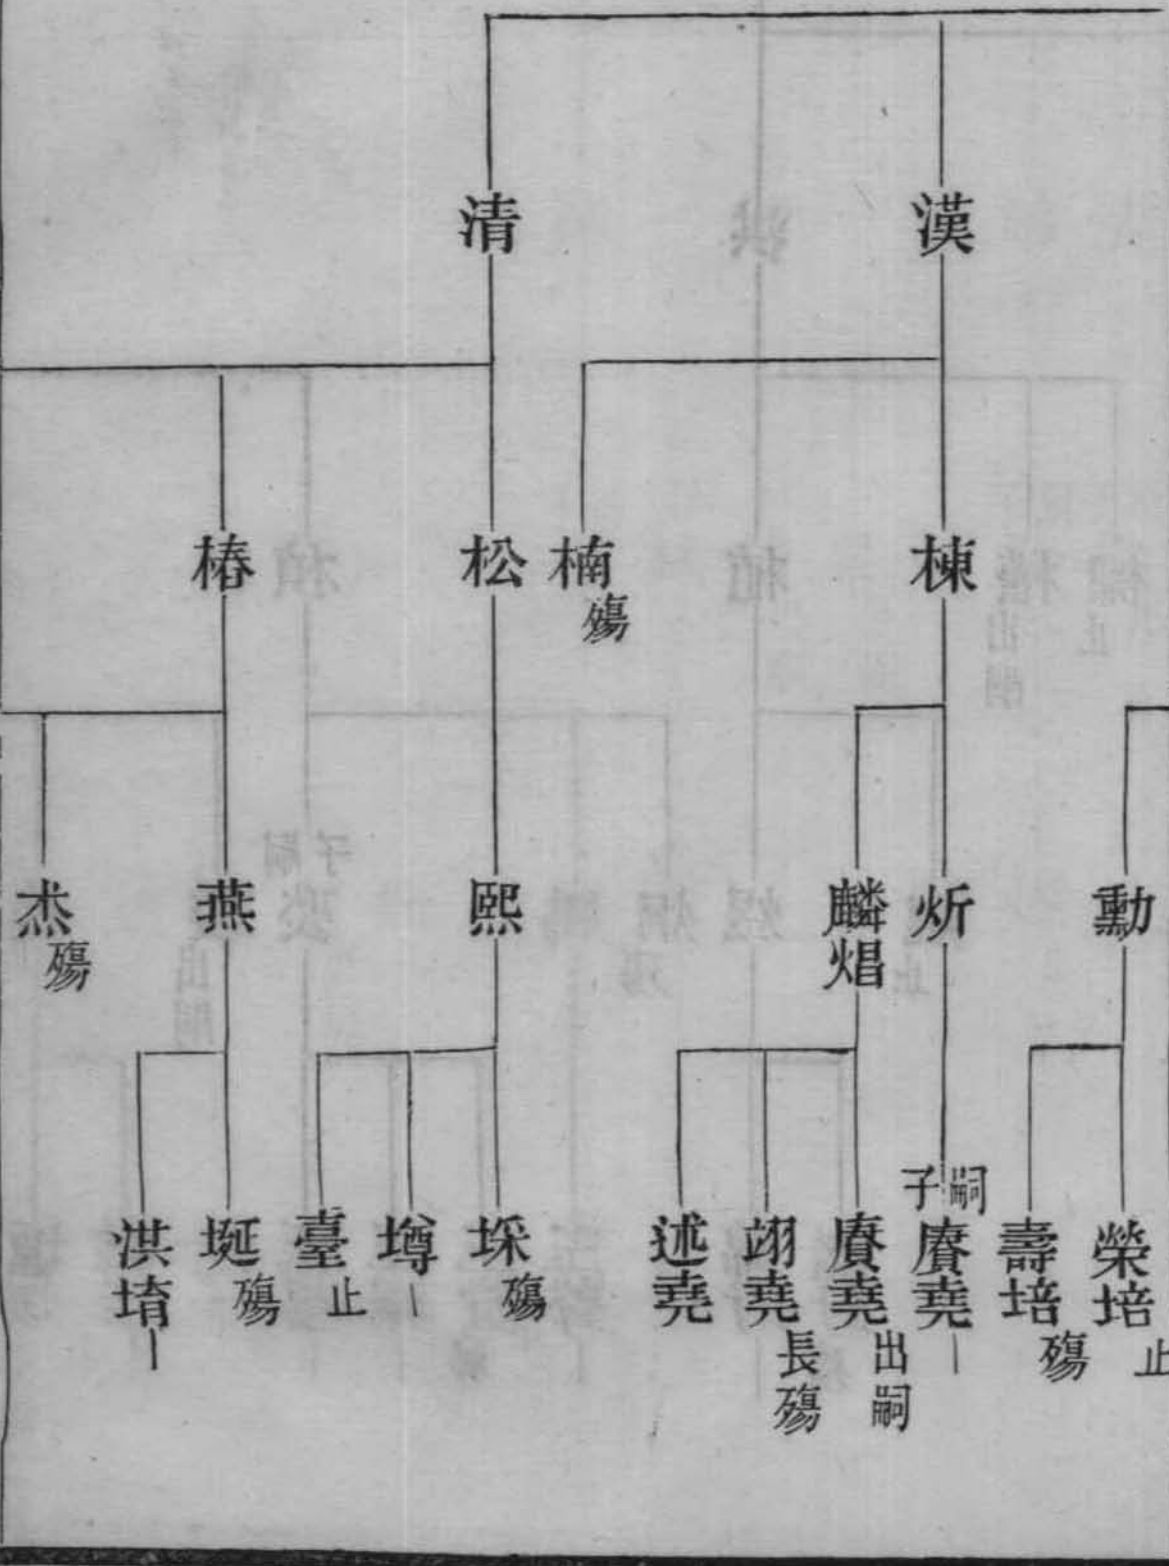 漢
清
棟
楠殤
松
椿
勳
炘
麟焻
熙
燕
杰殤
榮培止
壽培殤
嗣子賡堯
賡堯出嗣
翊堯長殤
述堯
埰殤
墫
臺止
埏殤
洪堉